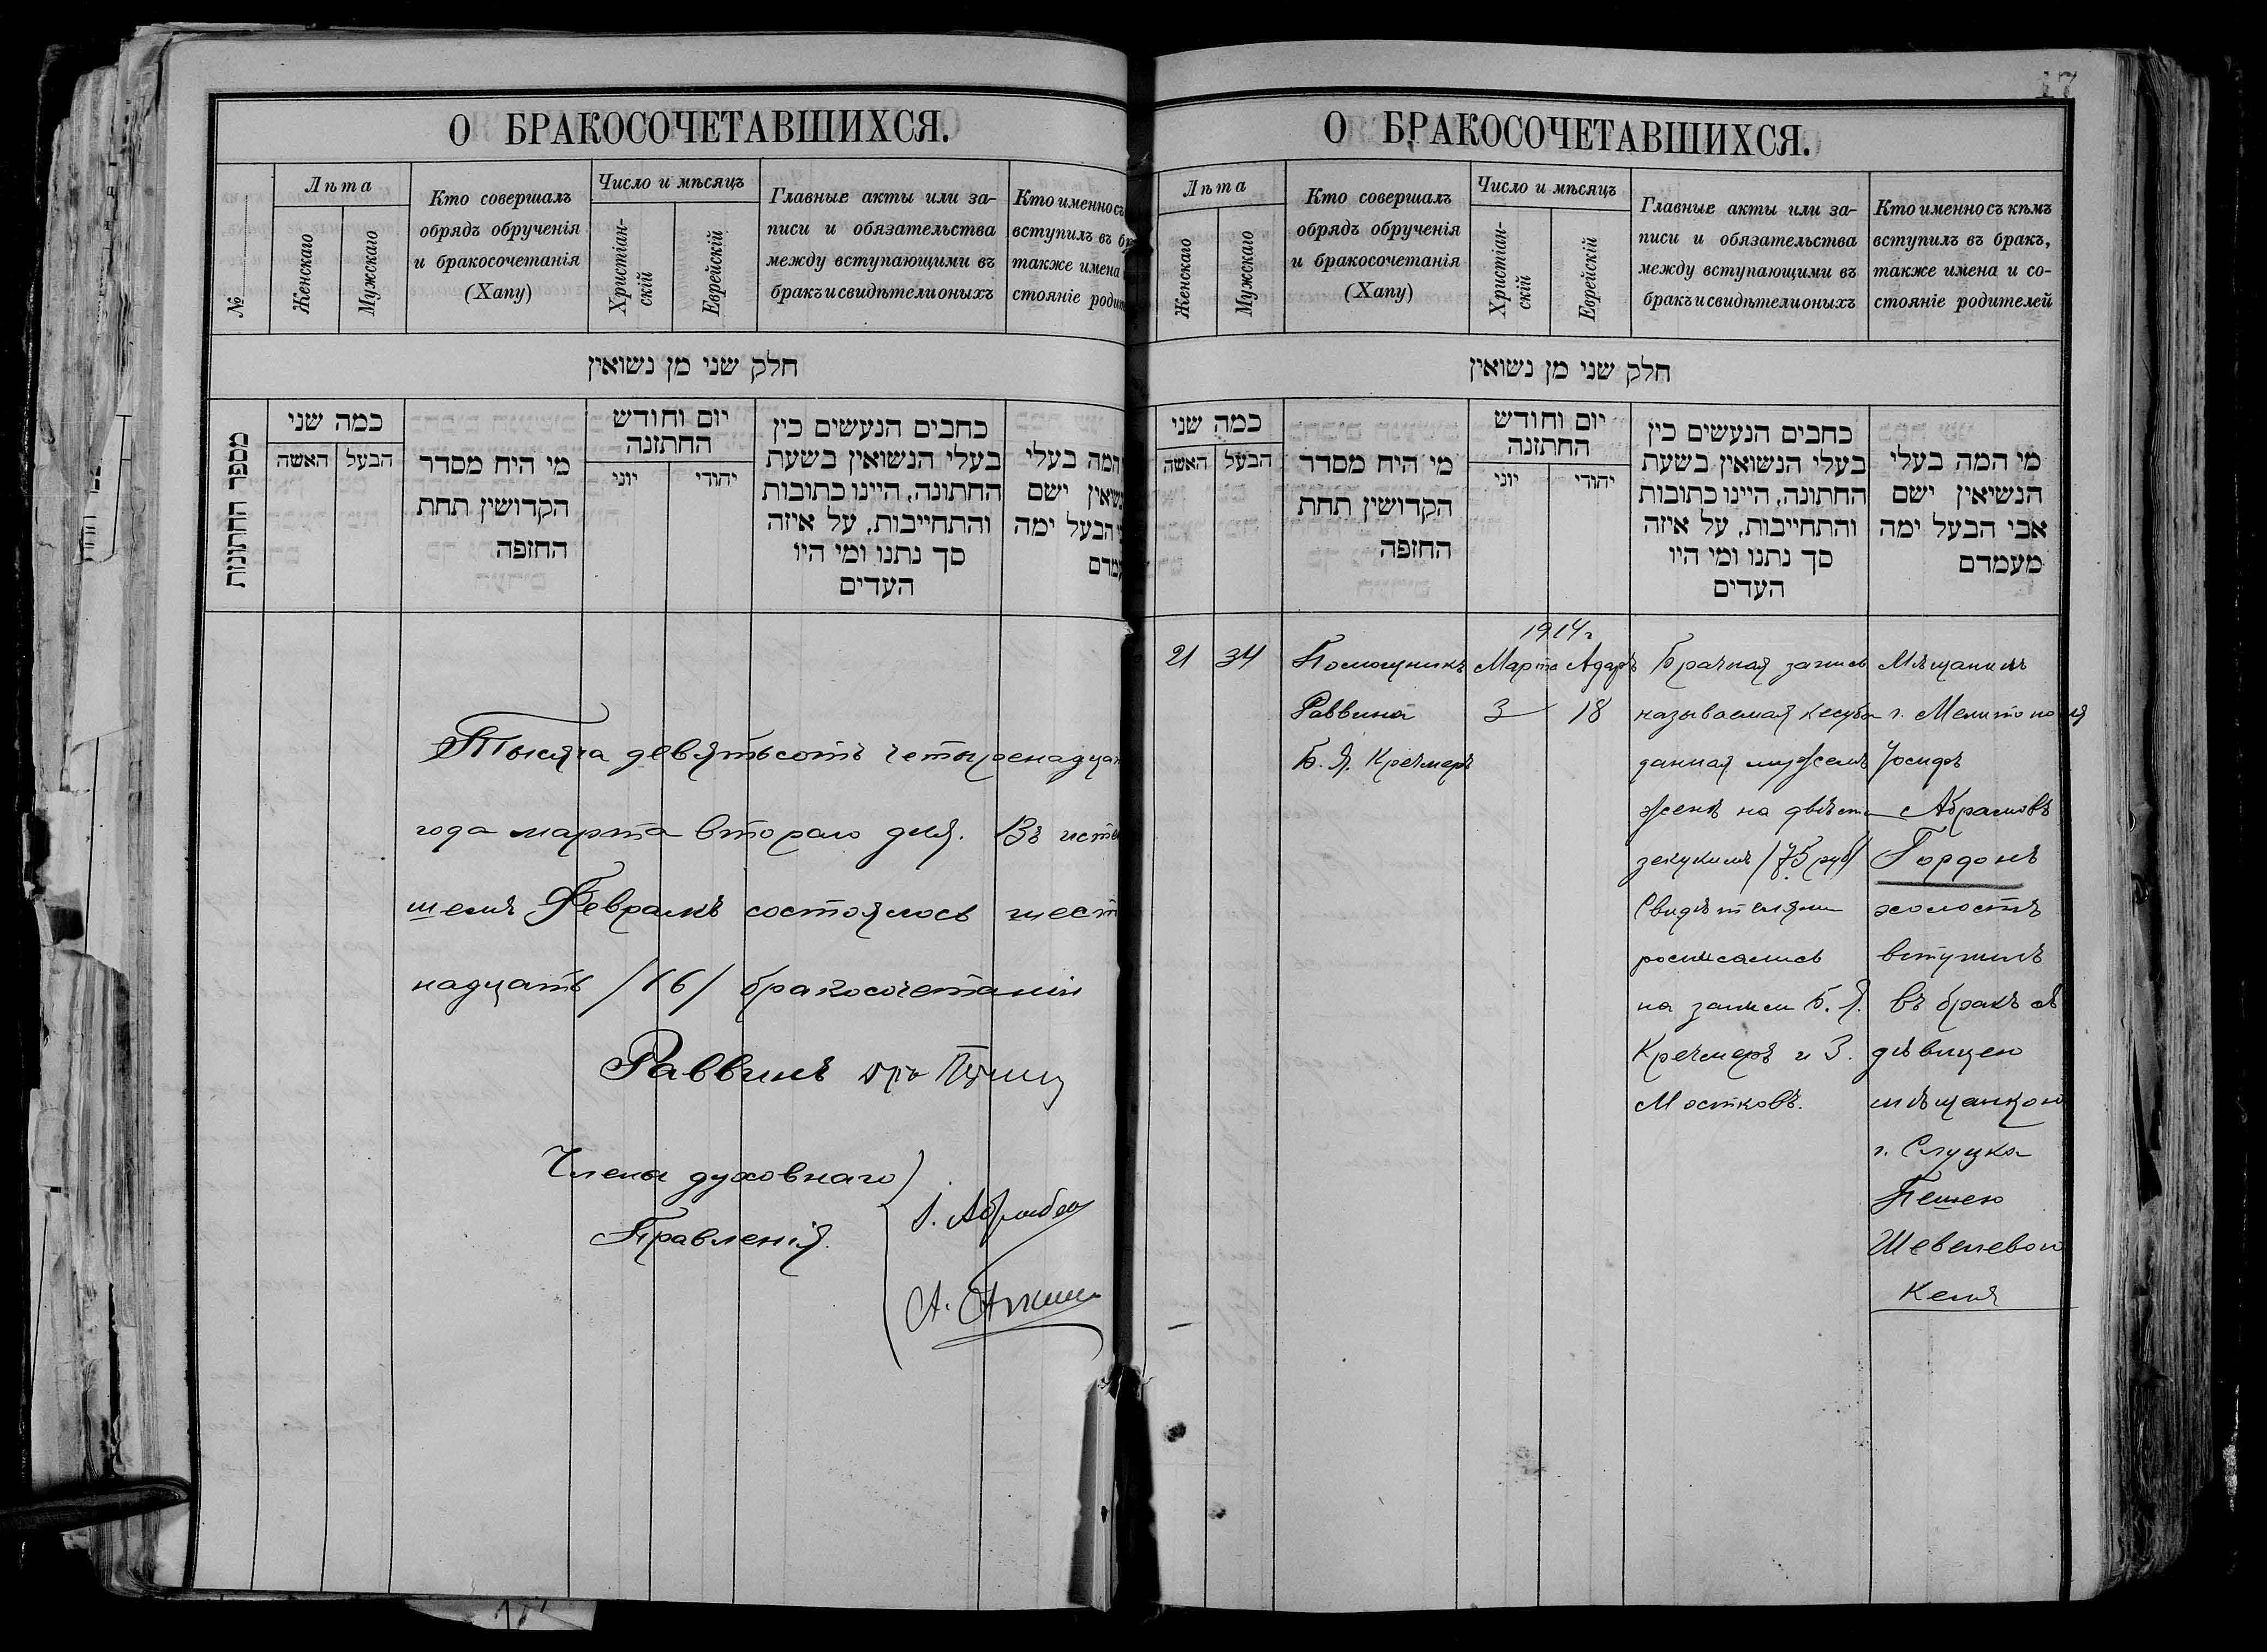 О БРАКОСОЧЕТАВШИХСЯ.
№
Лѣта
Женскаго
Мужскаго
Кто совершалъ
обрядъ обрученія
и бракосочетанія
(Хапу)
Число и мѣсяцъ
Христіан-
скій
Еврейскій
Главные акты или за-
писи и обязательства
между вступающими въ
бракъ и свидѣтели оныхъ
Кто именно съ
вступилъ въ бр
также имена
стояніе родит
חלק שני מן נשואין
מספר החתונות
כמה שני
האשה
הבעל
מי היח מסדר
הקדושין תחת
החופה
יום וחודש
החתונה
יוני
יהודי
כחבים הנעשים כין
בעלי הנשואין בשעת
החתונה, היינו כתובות
והתחייבות, על איזה
סך נתנו ומי היו
העדים
המה בעלי
שואין ישם
הבעל ימה
עמדם
Тысяча девятьсотъ четыренадцат
года марта второго дня. Въ исте
шемъ Февралѣ состоялось шест
надцать /16/ бракосочетаній
Раввинъ
Члены духовнаго
Правленія.
17
О БРАКОСОЧЕТАВШИХСЯ.
Лѣта
Женскаго
Мужскаго
Кто совершалъ
обрядъ обрученія
и бракосочетанія
(Хапу)
Число и мѣсяцъ
Христіан-
скій
Еврейскій
Главные акты или за-
писи и обязательства
между вступающими въ
бракъ и свидѣтели оныхъ
Кто именно съ кѣмъ
вступилъ въ бракъ,
также имена и со-
стояніе родителей
חלק שני מן נשואין
כמה שני
האשה
הבעל
מי היח מסדר
הקדושין תחת
החופה
יום וחודש
החתונה
יוני
יהודי
כחבים הנעשים כין
בעלי הנשואין בשעת
החתונה, היינו כתובות
והתחייבות, על איזה
סך נתנו ומי היו
העדים
מי המה בעלי
הנשיאין ישם
אבי הבעל ימה
מעמדם
21
34
Помощникъ
Раввина
Б. Я. Кречмеръ
1914г
Марта Адаръ
3 18
Брачная запись
называемая кесуба
данная мужемъ
женѣ на двѣсти
зекукимъ /75 руб/
Свидѣтелями
росписались
на записи Б. Я.
Кречмеръ и З.
Мостковъ.
Мѣщанинъ
г. Мелитополя
Іосифъ
Абрамовъ
Гордонъ
холостъ
вступилъ
въ бракъ съ
дѣвицею
мѣщанкою
г. Слуцка
Пешею
Шевелевою
Келя